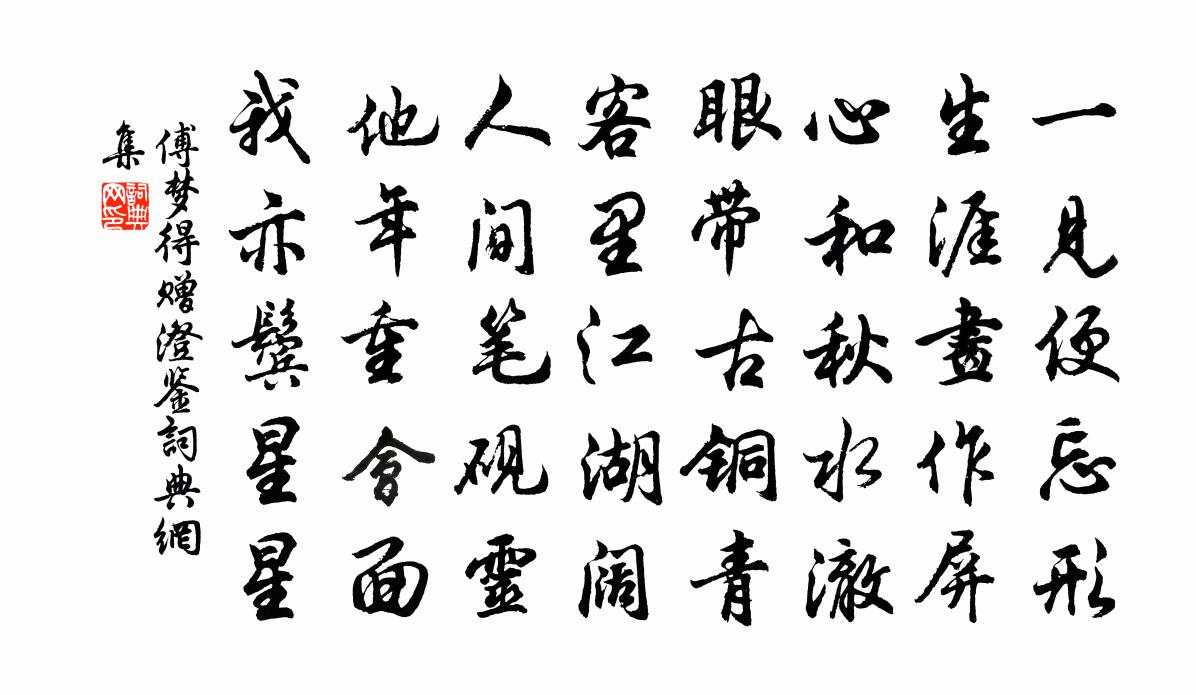 一见便忘形
生涯畫作屏
心和秋水澈
眼带古铜青
客里江湖阔
人间笔砚靈
他年重會面
我亦鬓星星
傅梦得赠澄鉴詞典網
集
詞典
网印